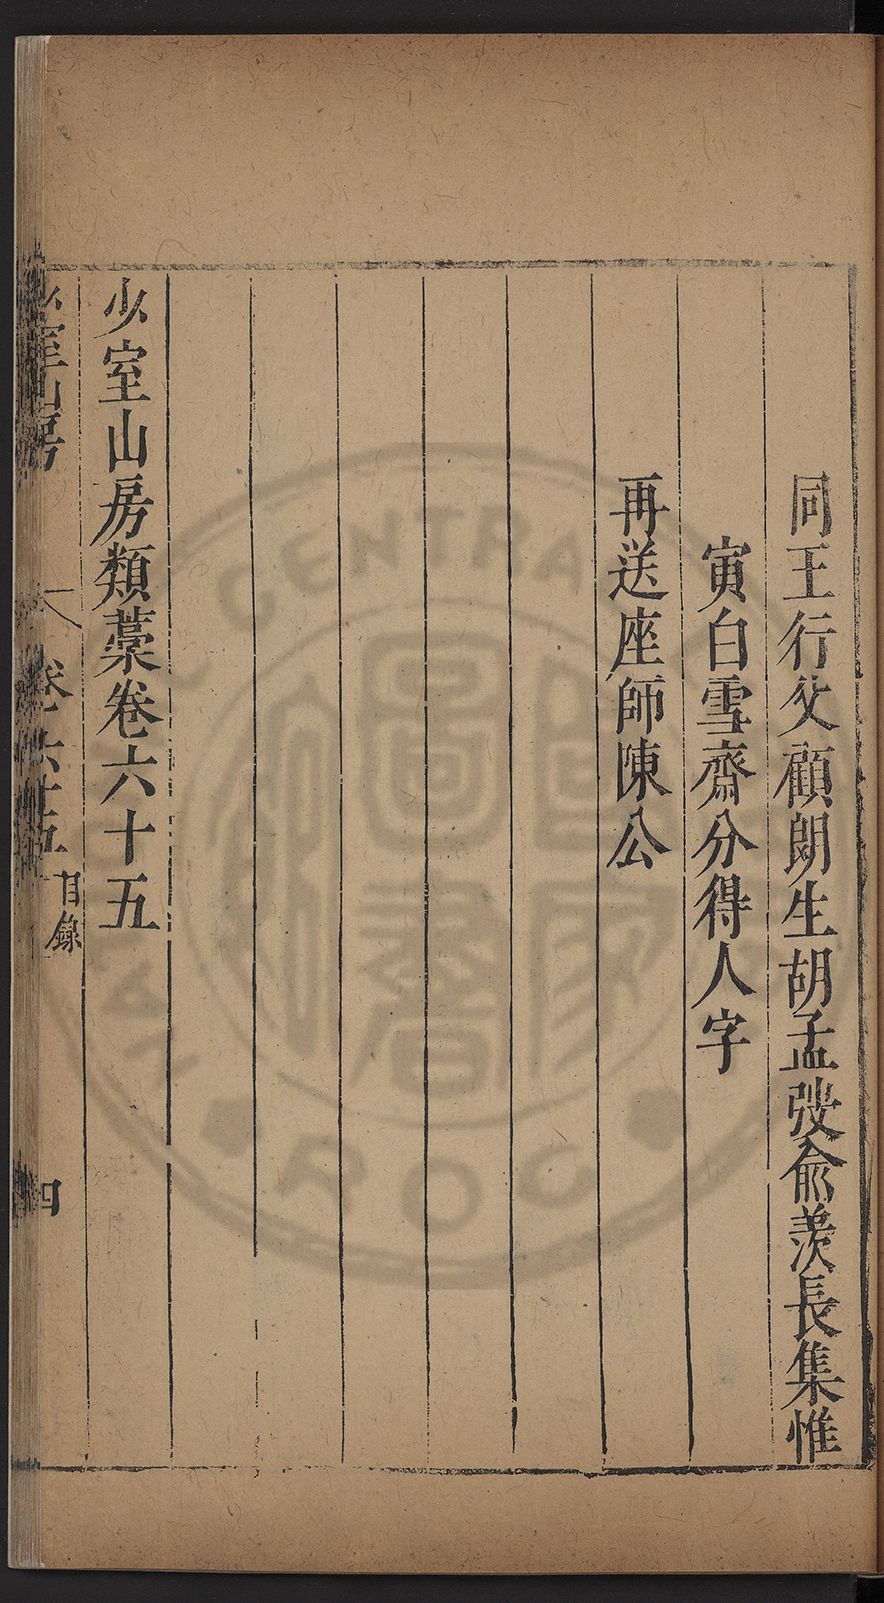 同王行父顧朗生胡孟弢俞羨長集惟
寅白雪齋分得人字
再送座師陳公
少室山房類藁卷六十五
少室山房
卷六十五
目錄
四
CENTRA